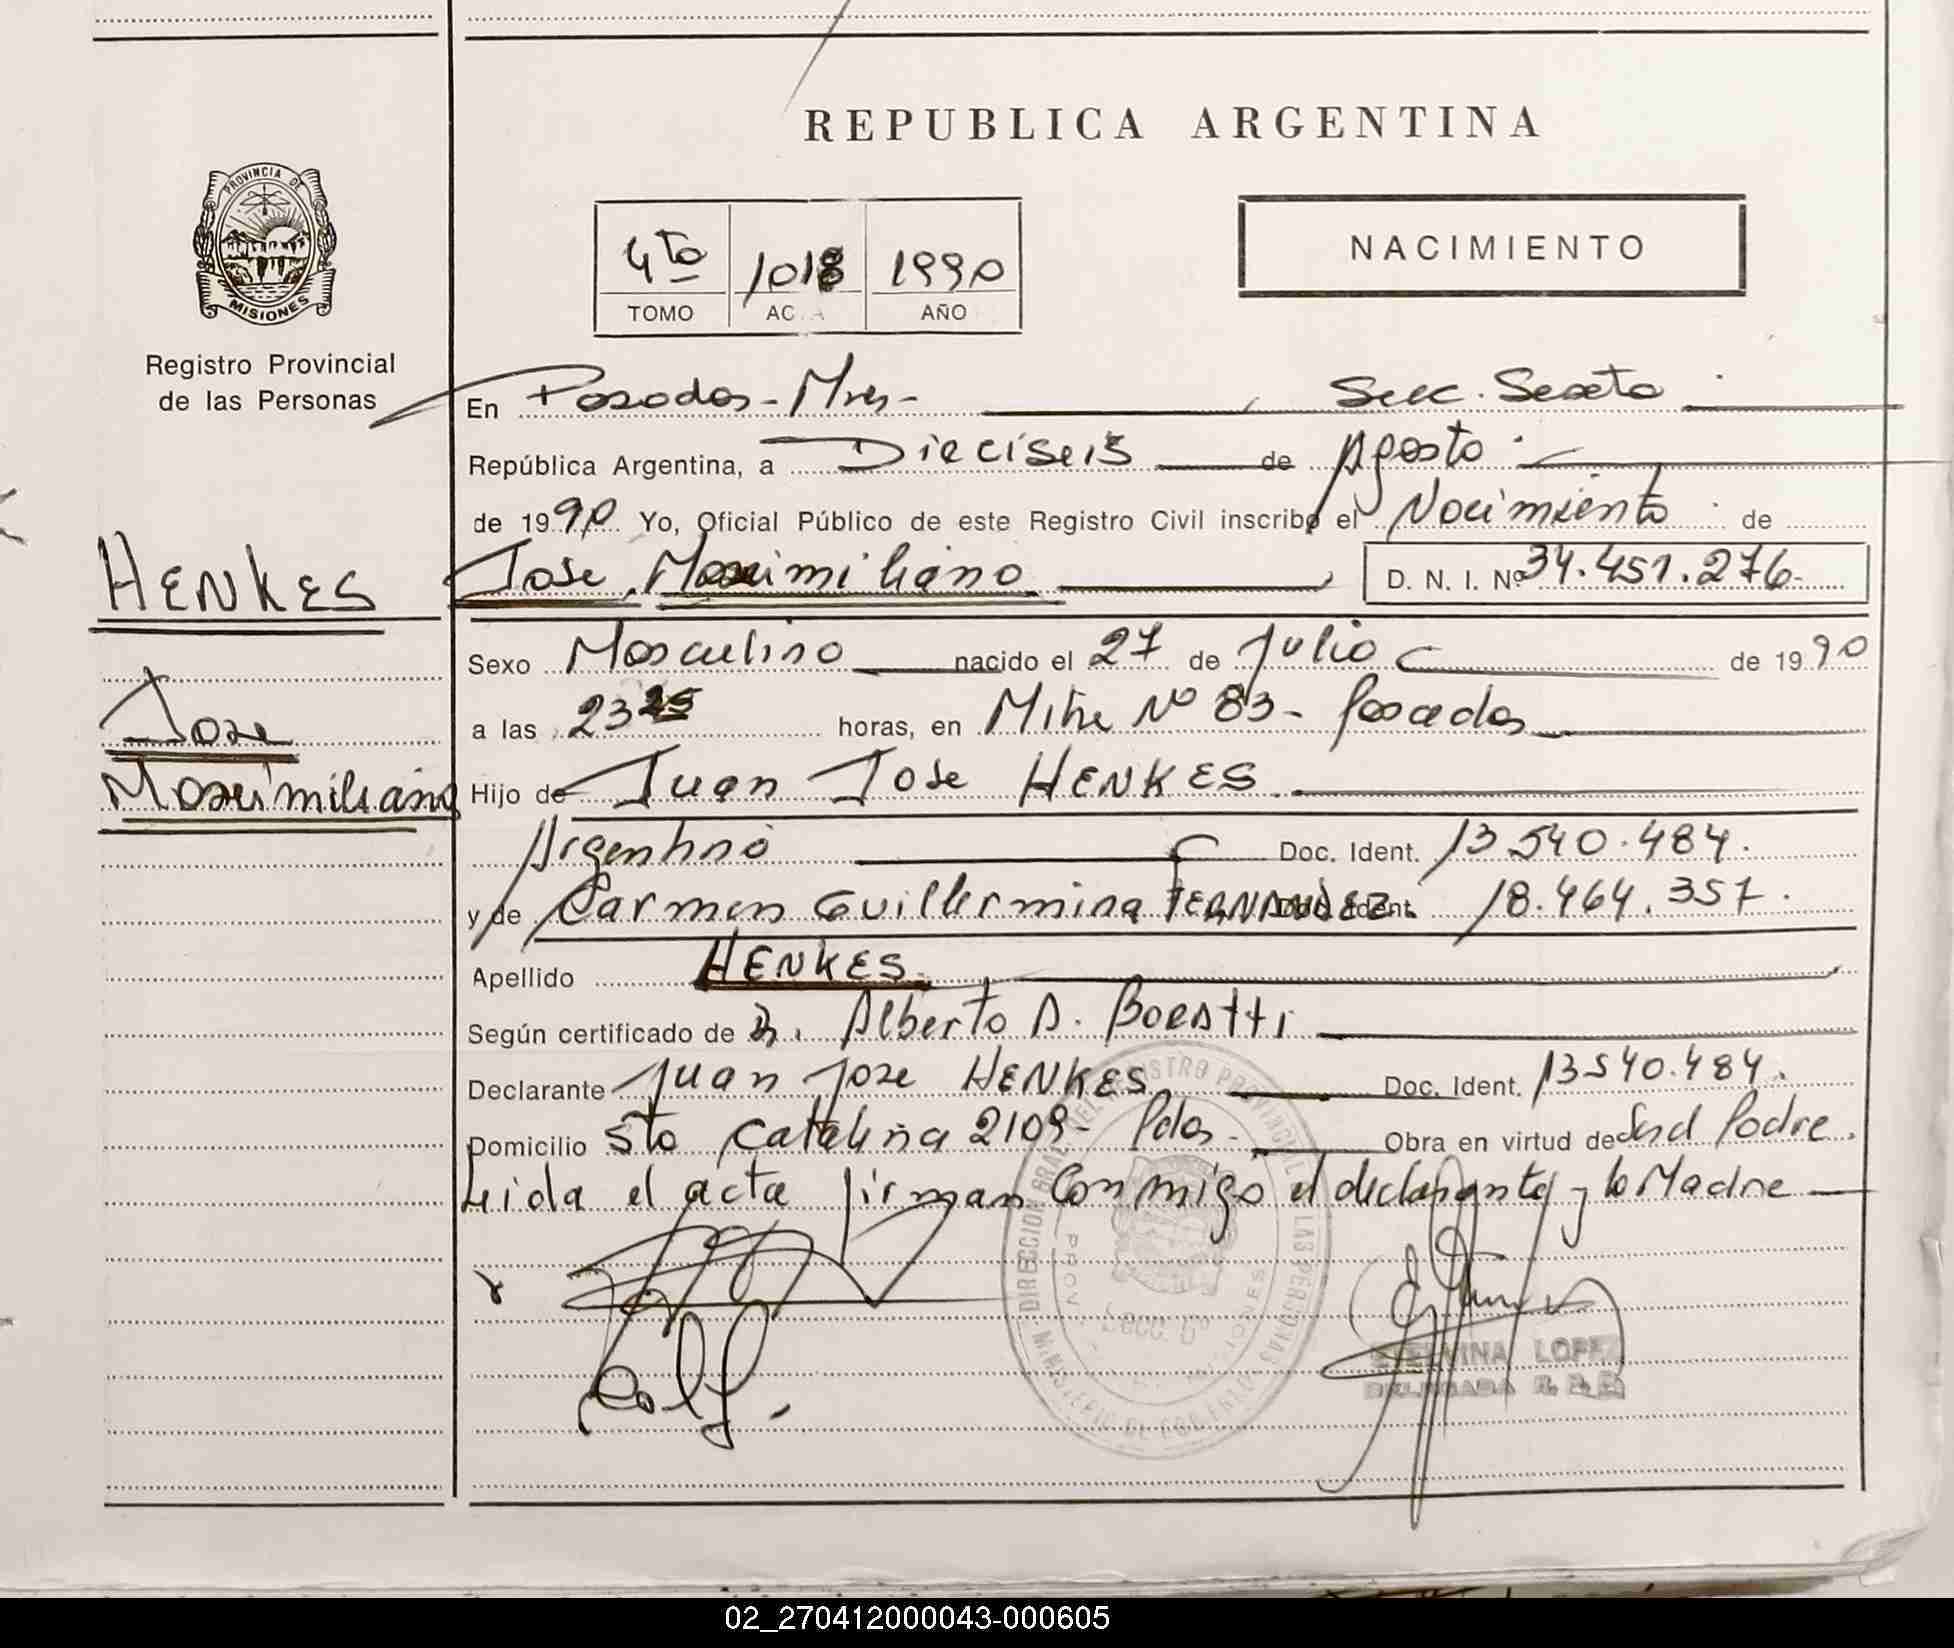 REPUBLICA ARGENTINA
PROVINCIA DE
MISIONES
Registro Provincial
de las Personas
4to 1018 1990
TOMO AC A AÑO
NACIMIENTO
En Posadas - Mnes - Secc. Sexta
República Argentina, a Dieciseis de Agosto
de 1990 Yo, Oficial Público de este Registro Civil inscribo el Nacimiento de
HENKES
Jose Maximiliano D. N. I. Nº 34.451.276
Sexo Masculino nacido el 27 de Julio de 1990
Jose
a las 23 25 horas, en Mitre Nº 83 - Posadas
Maximiliano
Hijo de Juan Jose HENKES
Argentino Doc. Ident. 13.540.484.
y de Carmen Guillermina FERNANDEZ. Doc. Ident. 18.464.357.
Apellido HENKES
Según certificado de Dr. Alberto A. 
Declarante Juan Jose HENKES Doc. Ident. 13.540.484.
Domicilio Sta Catalina 2109 - Pdas - Obra en virtud de Ser el Padre.
Leida el acta firman Conmigo el declarante y la Madre
DIRECCION GRAL DEL REGISTRO PROVINCIAL DE LAS PERSONAS
MINISTERIO DE GOBIERNO
PROV. MISIONES
Secc. 6º
ETELVINA LOPEZ
DELEGADA R. P. P.
02_270412000043-000605